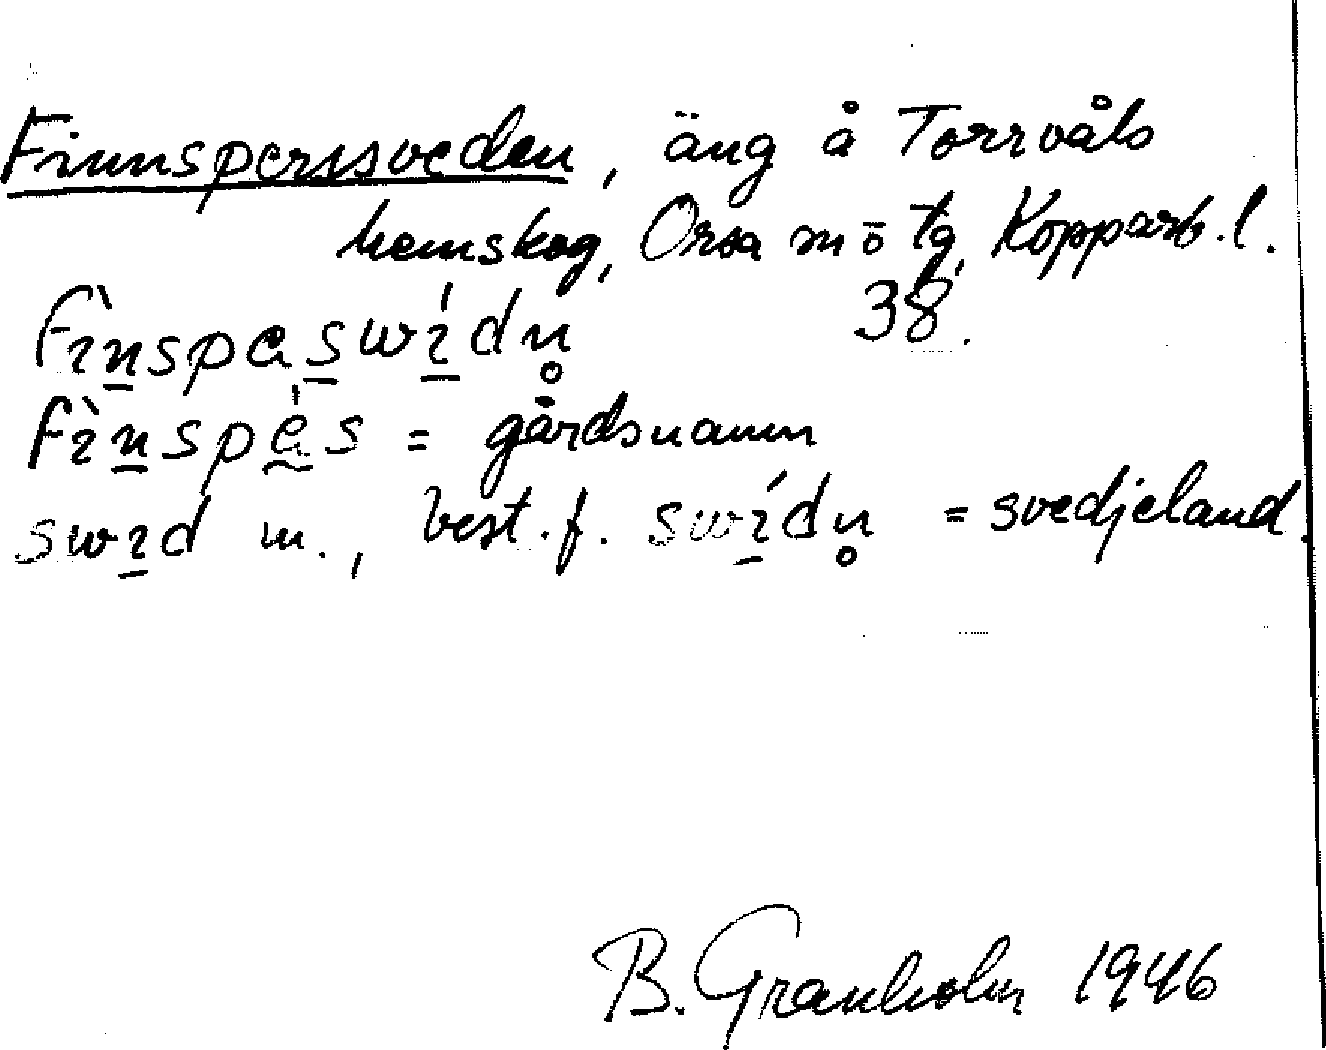 Finnsperssveden, äng å Torrvåls
hemskog, Orsa m ō tg, Kopparb. l.
fìn̲spɐs̲wí̲dn̥ 38.
fìn̲spɐ̀s = gårdsnamn
swi̲d m., best. f. swí̲dn̥ = svedjeland.
B. Granholm 1946